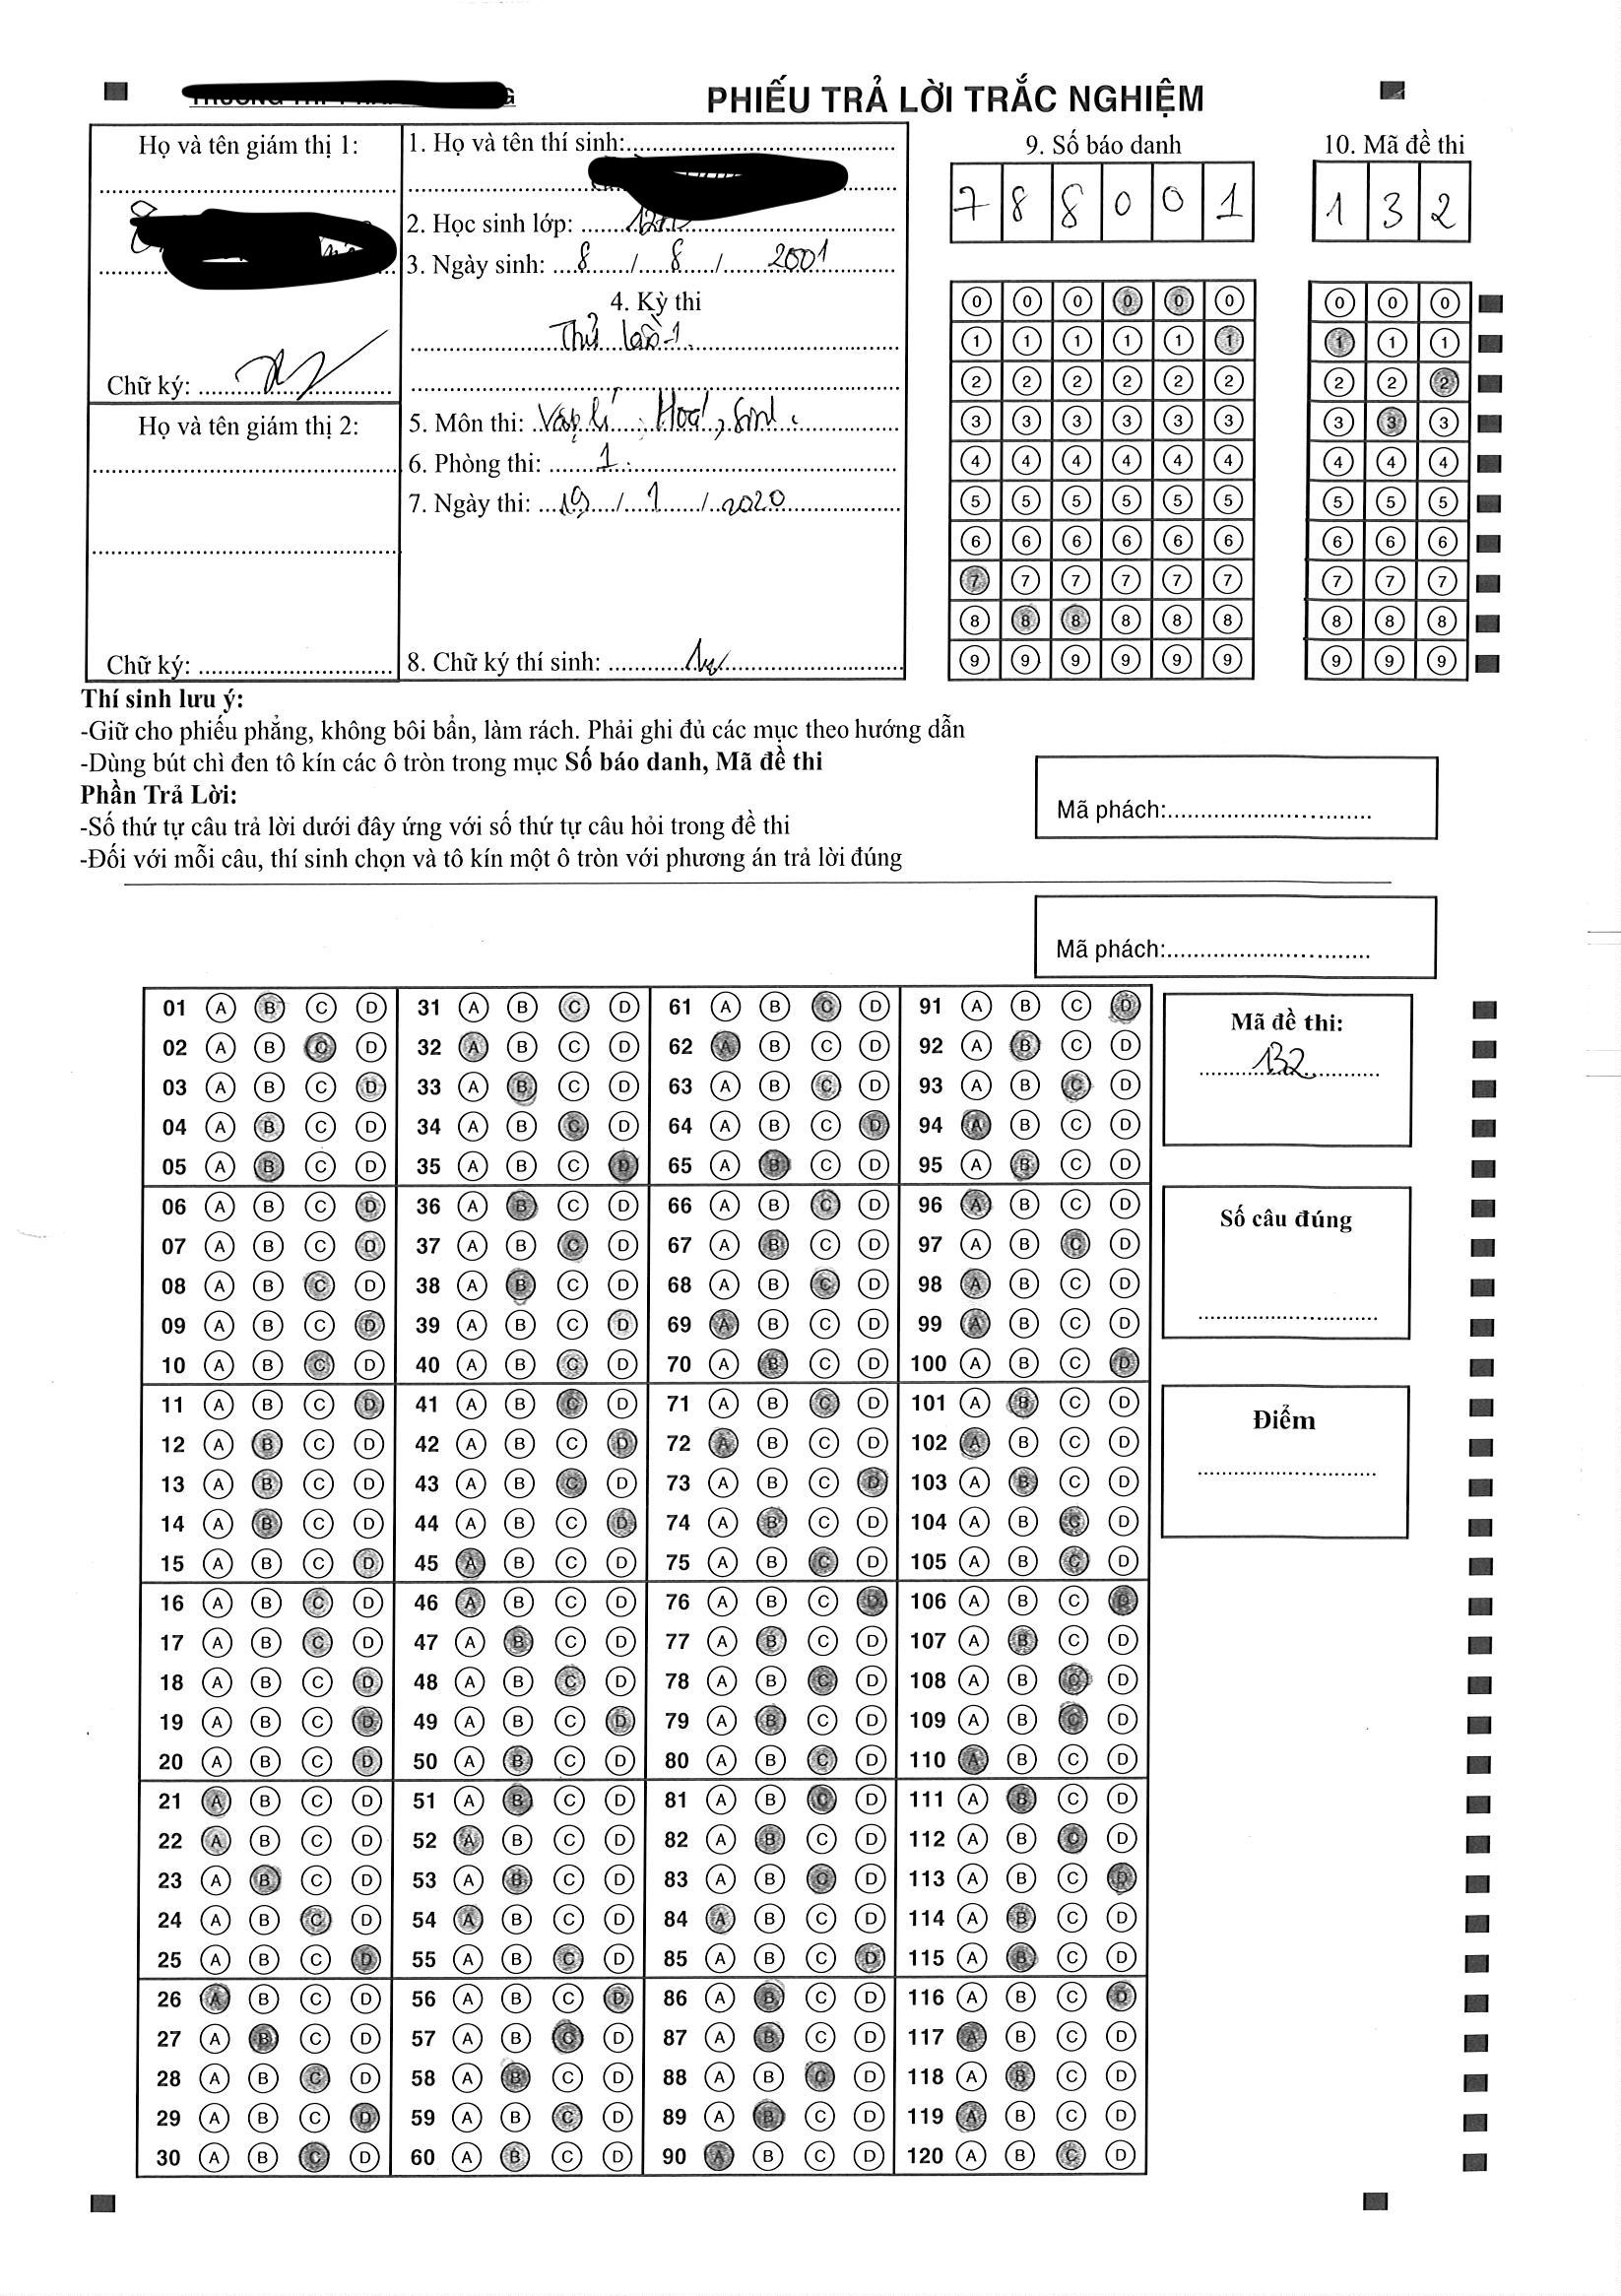 PHIẾU TRẢ LỜI TRẮC NGHIỆM
Họ và tên giám thị 1:
Chữ ký:
Họ và tên giám thị 2:
Chữ ký:
1. Họ và tên thí sinh:
2. Học sinh lớp:
3. Ngày sinh: 8 / 8 / 2001
4. Kỳ thi
Thử lần 1
5. Môn thi: Vật lí, Hoá, Sinh.
6. Phòng thi: 1
7. Ngày thi: 19 / 1 / 2020
8. Chữ ký thí sinh:
9. Số báo danh
7 8 8 0 0 1
0 0 0 0 0 0
1 1 1 1 1 1
2 2 2 2 2 2
3 3 3 3 3 3
4 4 4 4 4 4
5 5 5 5 5 5
6 6 6 6 6 6
7 7 7 7 7 7
8 8 8 8 8 8
9 9 9 9 9 9
10. Mã đề thi
1 3 2
0 0 0
1 1 1
2 2 2
3 3 3
4 4 4
5 5 5
6 6 6
7 7 7
8 8 8
9 9 9
Thí sinh lưu ý:
-Giữ cho phiếu phẳng, không bôi bẩn, làm rách. Phải ghi đủ các mục theo hướng dẫn
-Dùng bút chì đen tô kín các ô tròn trong mục Số báo danh, Mã đề thi
Phần Trả Lời:
-Số thứ tự câu trả lời dưới đây ứng với số thứ tự câu hỏi trong đề thi
-Đối với mỗi câu, thí sinh chọn và tô kín một ô tròn với phương án trả lời đúng
Mã phách:
Mã phách:
01 A B C D 31 A B C D 61 A B C D 91 A B C D
02 A B C D 32 A B C D 62 A B C D 92 A B C D
03 A B C D 33 A B C D 63 A B C D 93 A B C D
04 A B C D 34 A B C D 64 A B C D 94 A B C D
05 A B C D 35 A B C D 65 A B C D 95 A B C D
06 A B C D 36 A B C D 66 A B C D 96 A B C D
07 A B C D 37 A B C D 67 A B C D 97 A B C D
08 A B C D 38 A B C D 68 A B C D 98 A B C D
09 A B C D 39 A B C D 69 A B C D 99 A B C D
10 A B C D 40 A B C D 70 A B C D 100 A B C D
11 A B C D 41 A B C D 71 A B C D 101 A B C D
12 A B C D 42 A B C D 72 A B C D 102 A B C D
13 A B C D 43 A B C D 73 A B C D 103 A B C D
14 A B C D 44 A B C D 74 A B C D 104 A B C D
15 A B C D 45 A B C D 75 A B C D 105 A B C D
16 A B C D 46 A B C D 76 A B C D 106 A B C D
17 A B C D 47 A B C D 77 A B C D 107 A B C D
18 A B C D 48 A B C D 78 A B C D 108 A B C D
19 A B C D 49 A B C D 79 A B C D 109 A B C D
20 A B C D 50 A B C D 80 A B C D 110 A B C D
21 A B C D 51 A B C D 81 A B C D 111 A B C D
22 A B C D 52 A B C D 82 A B C D 112 A B C D
23 A B C D 53 A B C D 83 A B C D 113 A B C D
24 A B C D 54 A B C D 84 A B C D 114 A B C D
25 A B C D 55 A B C D 85 A B C D 115 A B C D
26 A B C D 56 A B C D 86 A B C D 116 A B C D
27 A B C D 57 A B C D 87 A B C D 117 A B C D
28 A B C D 58 A B C D 88 A B C D 118 A B C D
29 A B C D 59 A B C D 89 A B C D 119 A B C D
30 A B C D 60 A B C D 90 A B C D 120 A B C D
Mã đề thi:
132
Số câu đúng
Điểm